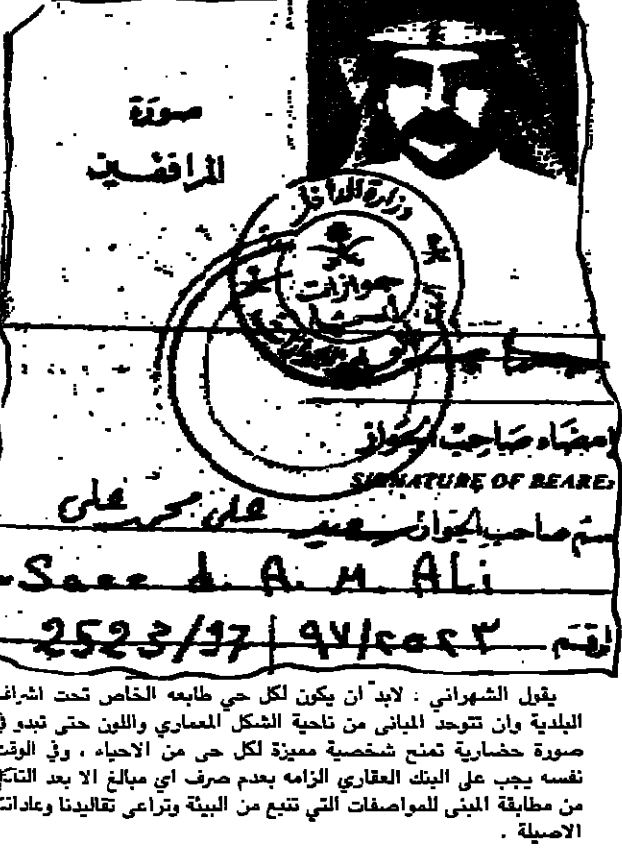 صورة
المرافقين
وزارة الداخلية
جوازات
إمضاء صاحب الجواز
SIGNATURE OF BEARER
سم صاحب الجواز سعيد علي محمد علي
Saeed. A. M. ALi
الرقم ٩٧/٢٥٢٣ | 2523/97
يقول الشهراني : لابد ان يكون لكل حي طابعه الخاص تحت اشراف
البلدية وان تتوحد المبانى من ناحية الشكل المعماري واللون حتى تبدو في
صورة حضارية تمنح شخصية مميزة لكل حى من الاحياء ، وفي الوقت
نفسه يجب على البنك العقاري الزامه بعدم صرف اي مبالغ الا بعد التأكد
من مطابقة المبنى للمواصفات التي تنبع من البيئة وتراعى تقاليدنا وعاداتنا
الاصيلة .